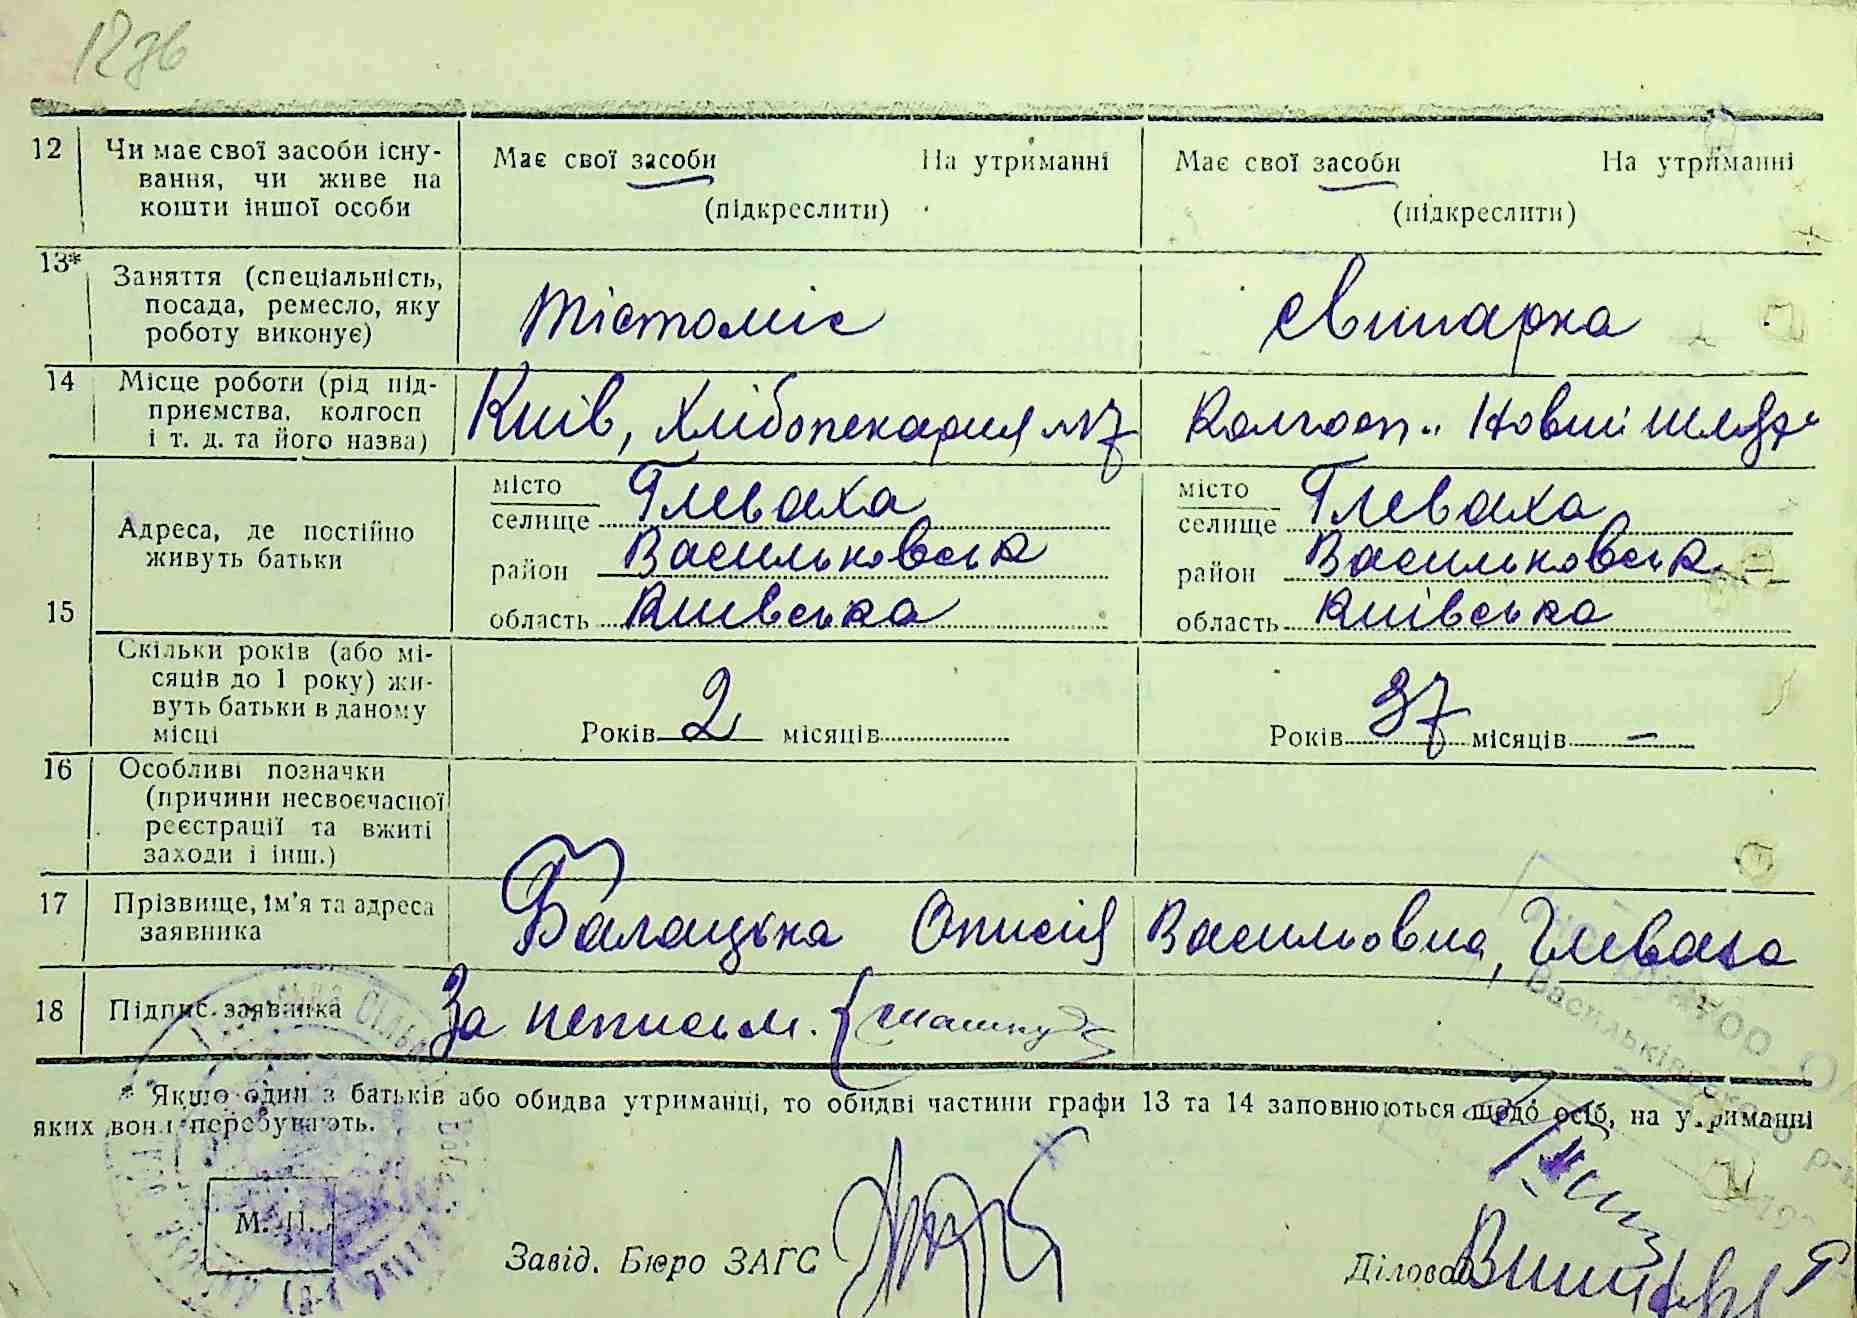 12 Чи має свої засоби існу-
вання, чи живе на
кошти іншої особи
Має свої засоби На утриманні
(підкреслити)
Має свої засоби На утриманні
(підкреслити)
13* Заняття (спеціальність,
посада, ремесло, яку
роботу виконує)
Тістоміс
свинарка
14 Місце роботи (рід під-
приємства, колгосп
і т. д. та його назва)
Київ, Хлібопекарня №7
Колгосп „Новий шлях"
15 Адреса, де постійно
живуть батьки
місто
селище Глеваха
район Васильковськ
область Київська
місто
селище Глеваха
район Васильковськ
область Київська
Скільки років (або мі-
сяців до 1 року) жи-
вуть батьки в даному
місці
Років 2 місяців
Років 37 місяців –
16 Особливі позначки
(причини несвоєчасної
реєстрації та вжиті
заходи і інш.)
17 Прізвище, ім'я та адреса
заявника
Балацька Описія Васильовна, Глеваха
18 Підпис заявника
За неписьм.
* Якщо один з батьків або обидва утриманці, то обидві частини графи 13 та 14 заповнюються щодо осіб, на утриманні
яких вони перебувають.
М. П.
Завід. Бюро ЗАГС
Діловод